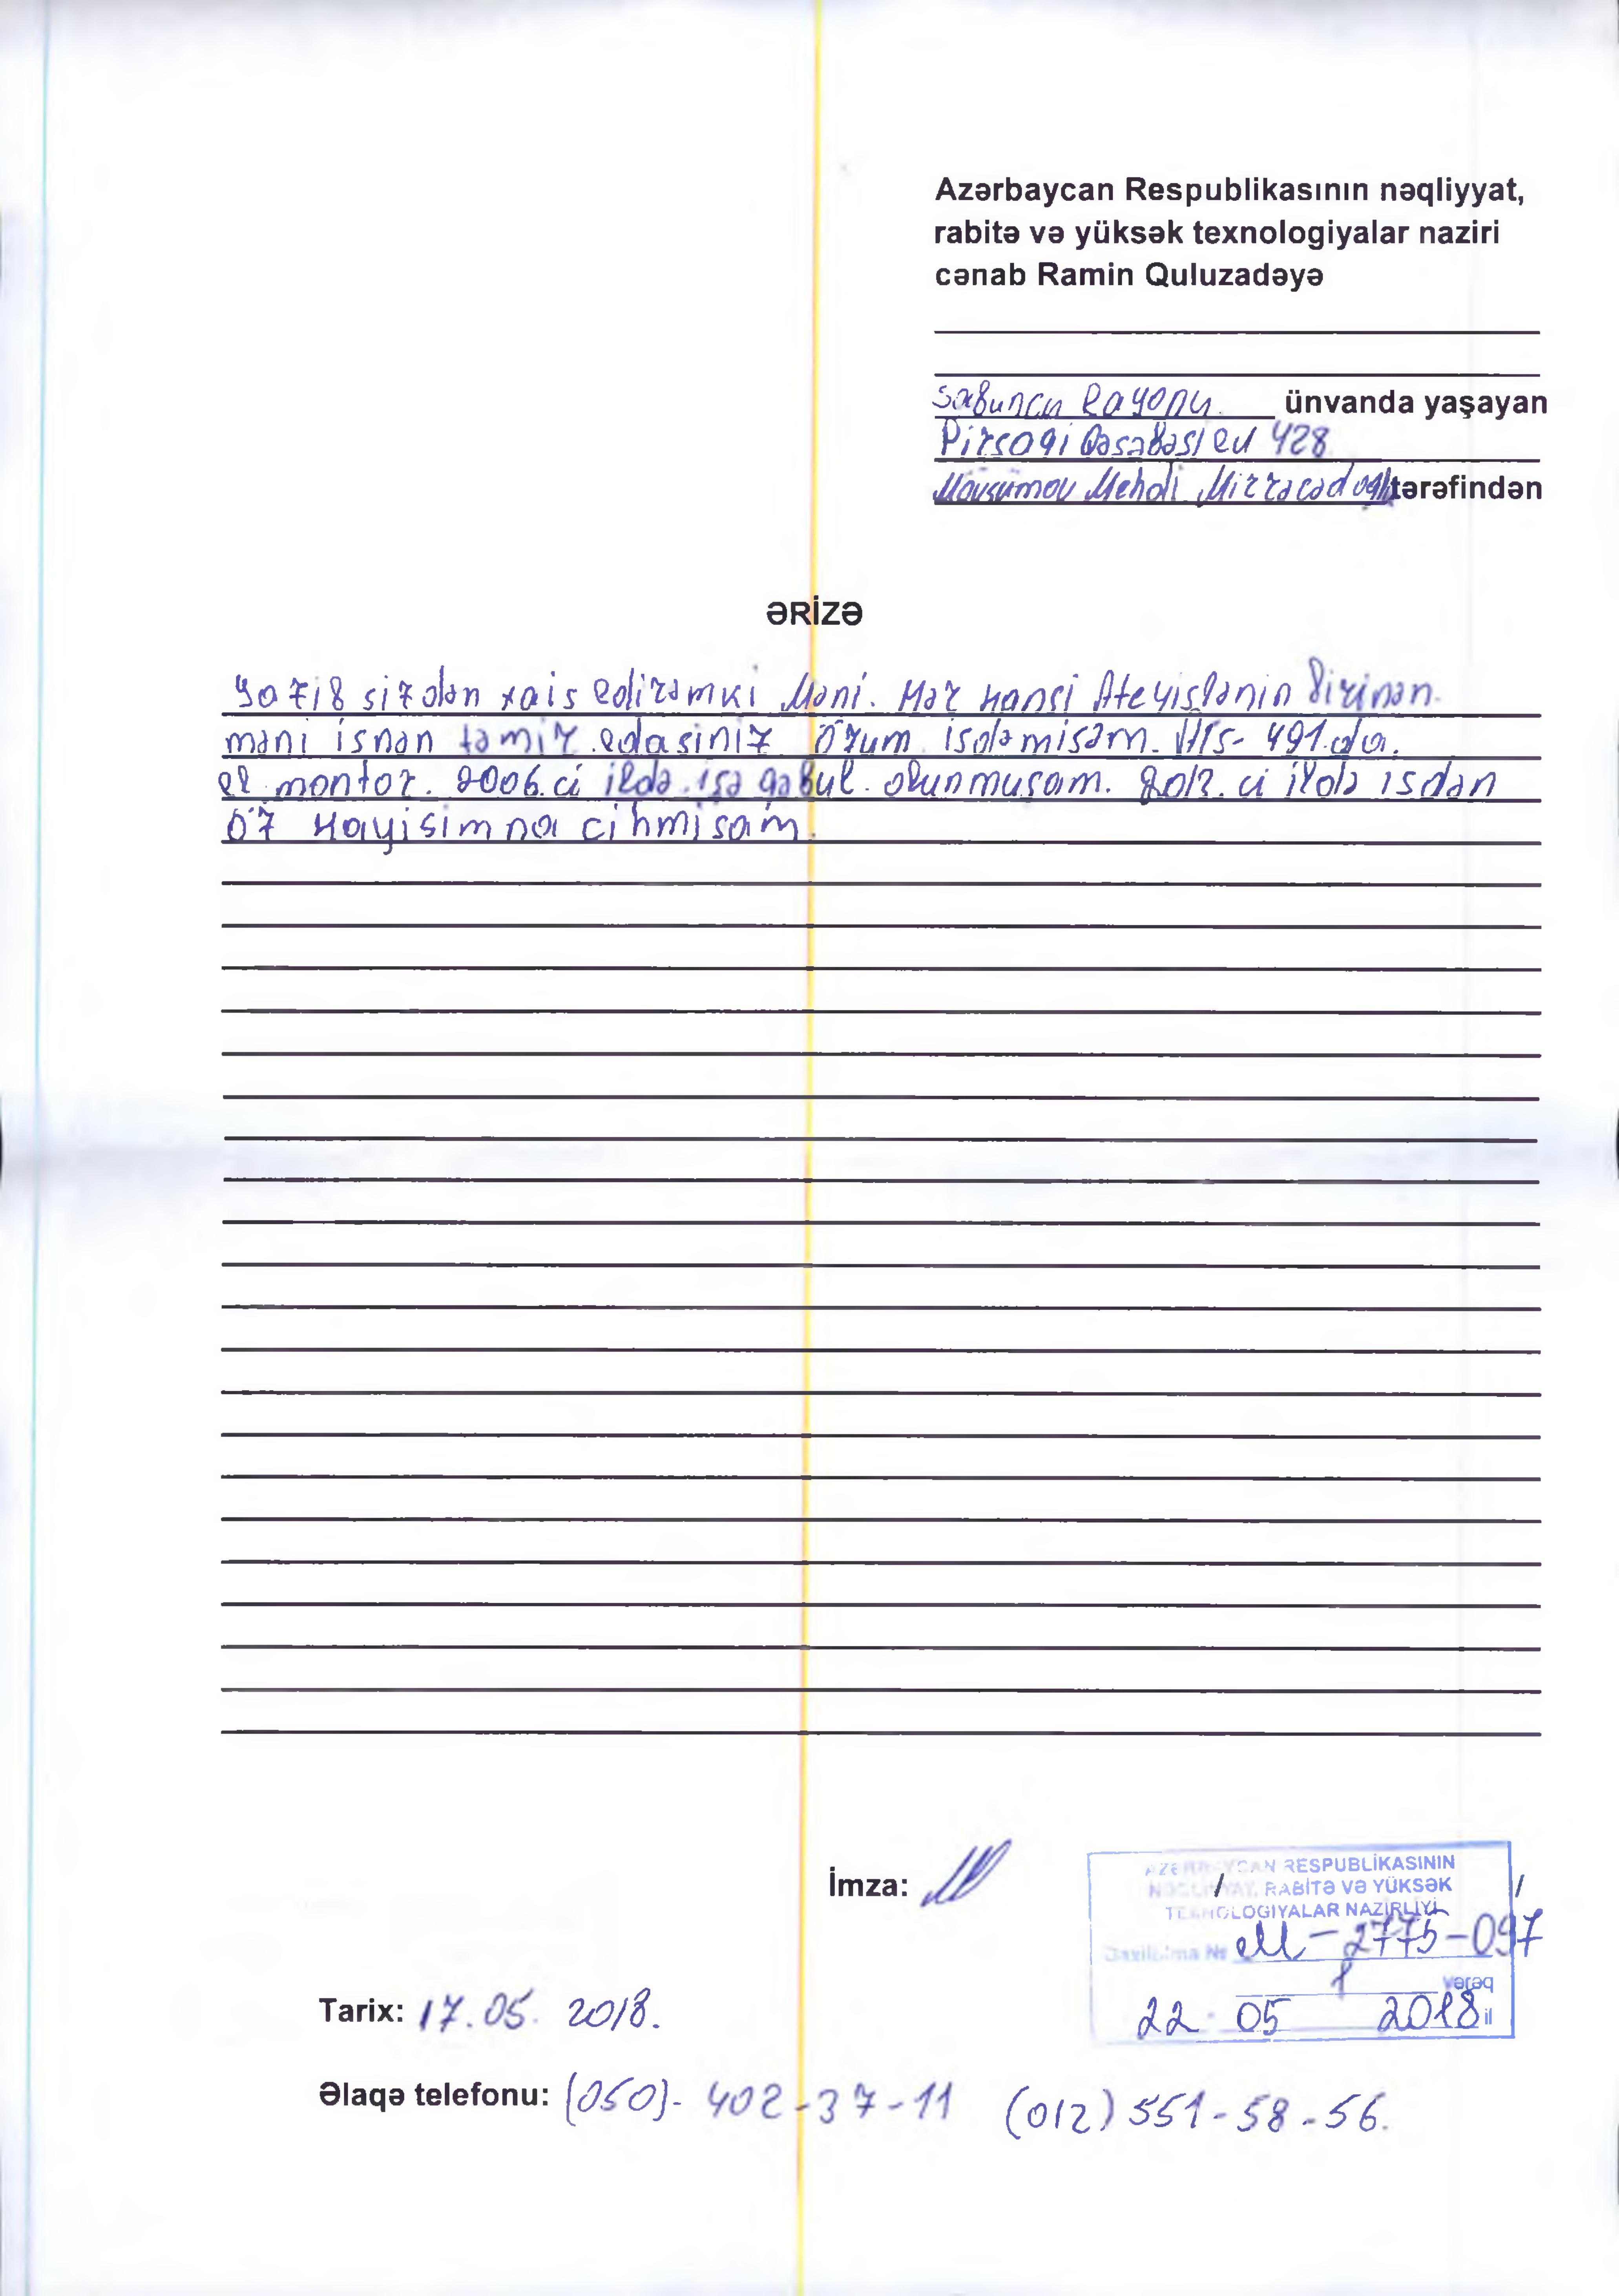 Azərbaycan Respublikasının nəqliyyat,
rabitə və yüksək texnologiyalar naziri
cənab Ramin Quluzadəyə
Sabuncu Rayonu. ünvanda yaşayan
Pirsagi Qəsəbəsi ev 428
Mövsümov Mehdi Mirzəcəd oğlu tərəfindən
ƏRİZƏ
yazib sizdən xais edirəmki Məni. Hər Hansi Ateyislənin birinən.
məni isnən təmir edəsiniz Özum isdəmisəm. ATS- 491.da.
el montor. 2006.ci ildə işə qəbul olunmuşam. 2012.ci ildə isdən
öz Hayisimna cihmisam.
İmza:
AZƏRBAYCAN RESPUBLİKASININ
NƏQLİYYAT, RABİTƏ VƏ YÜKSƏK
TEXNOLOGİYALAR NAZİRLİYİ
Daxilolma № M-2775-097
1 vərəq
22 05 2018 il
Tarix: 17.05. 2018.
Əlaqə telefonu: (050)- 402-37-11 (012) 551-58-56.